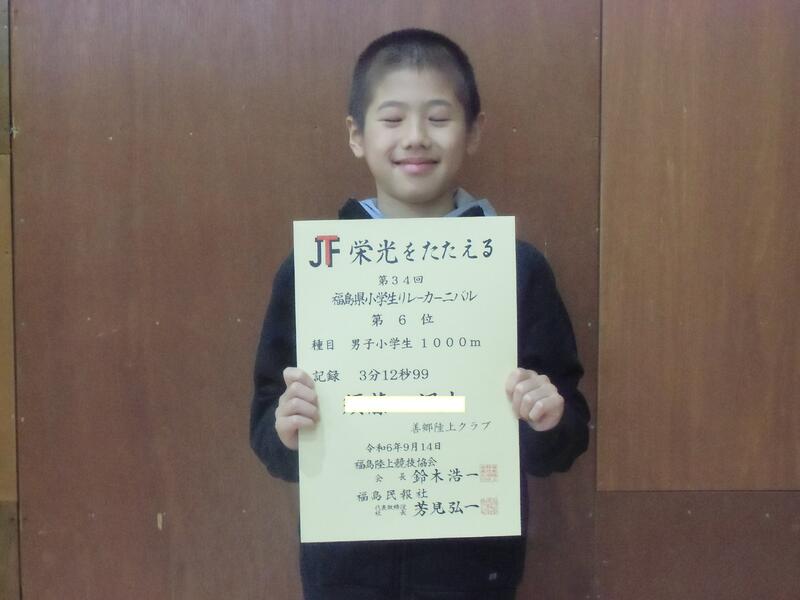 JTF 栄光をたたえる
第34回
福島県小学生リレーカーニバル
第 6 位
種目 男子小学生 1000m
記録 3分12秒99
善郷陸上クラブ
令和6年9月14日
福島陸上競技協会
会長 鈴木浩一
福島民報社
代表取締役社長 芳見弘一